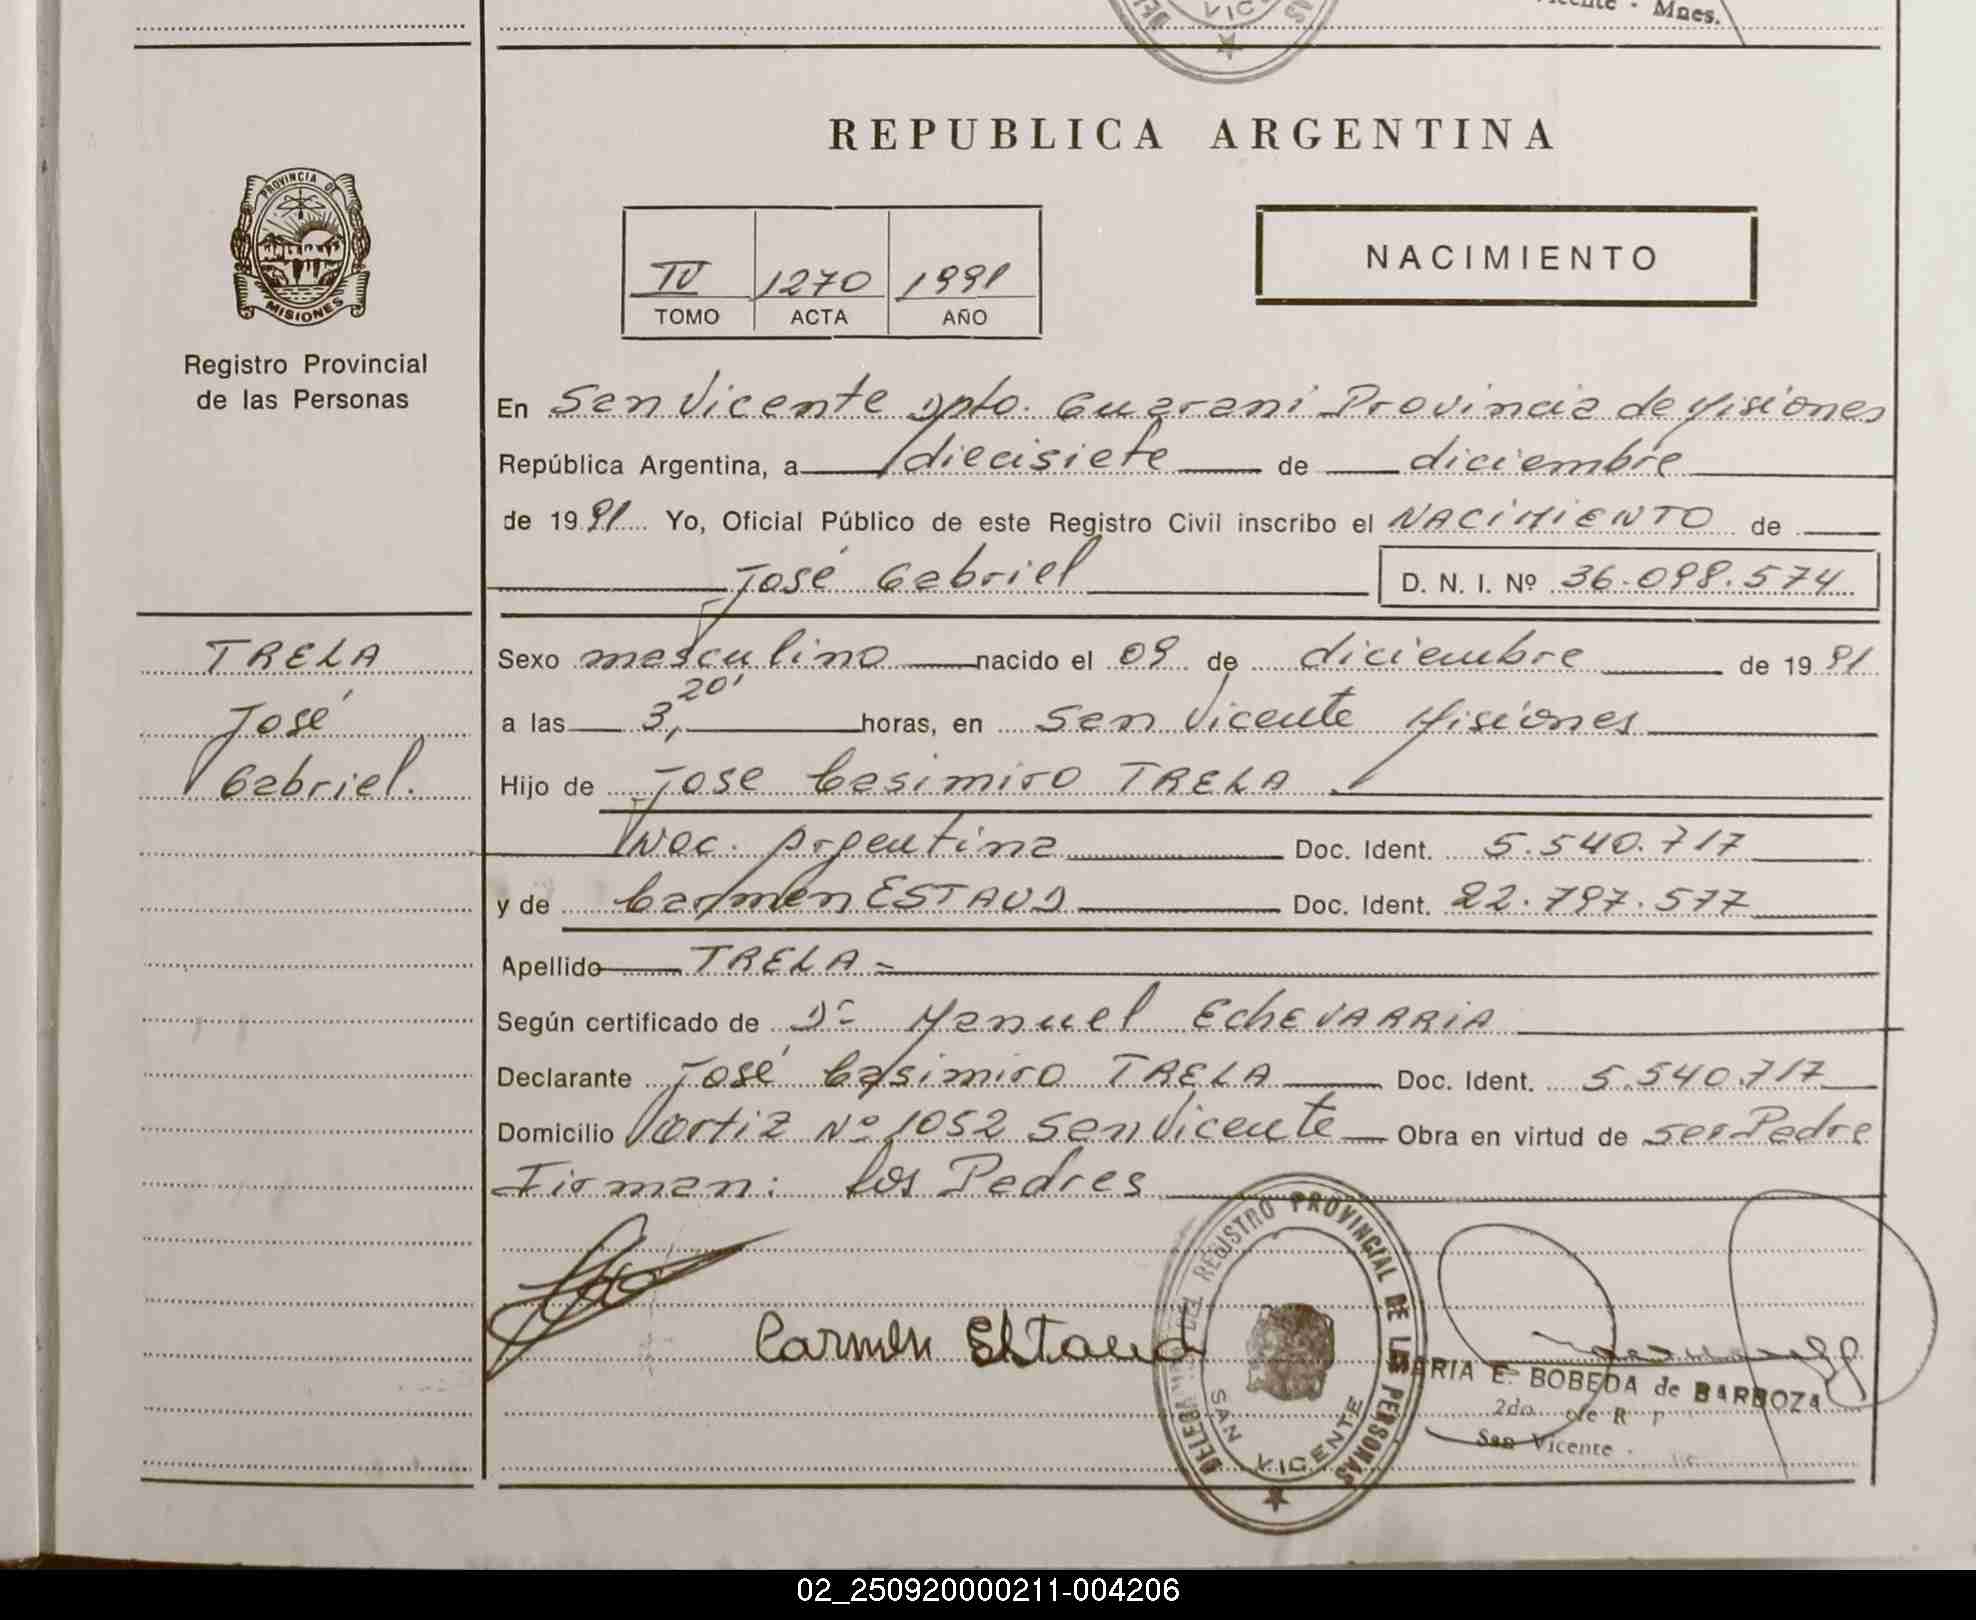 VIC
Vicente - Mnes.
REPUBLICA ARGENTINA
PROVINCIA DE
MISIONES
Registro Provincial
de las Personas
IV 1270 1991
TOMO ACTA AÑO
NACIMIENTO
En San Vicente Dpto. Guarani Provincia de Misiones
República Argentina, a diecisiete de diciembre
de 1991 Yo, Oficial Público de este Registro Civil inscribo el NACIMIENTO de
José Gabriel D. N. I. Nº 36.098.574
TRELA
José
Gabriel.
Sexo masculino nacido el 09 de diciembre de 1991
a las 3,20' horas, en San Vicente Misiones
Hijo de Jose Casimiro TRELA
Nac. Argentina Doc. Ident. 5.540.717
y de Carmen ESTAUD Doc. Ident. 22.797.577
Apellido TRELA =
Según certificado de Dr Manuel EchEVARRIA
Declarante José Casimiro TRELA Doc. Ident. 5.540.717
Domicilio Ortiz Nº 1052 San Vicente Obra en virtud de ser Padre
Firman: los Padres
Carmen Estaud
DELEGA DEL REGISTRO PROVINCIAL DE LAS PERSONAS
SAN VICENTE
MARIA E. BOBEDA de BARBOZA
2do
San Vicente -
02_250920000211-004206